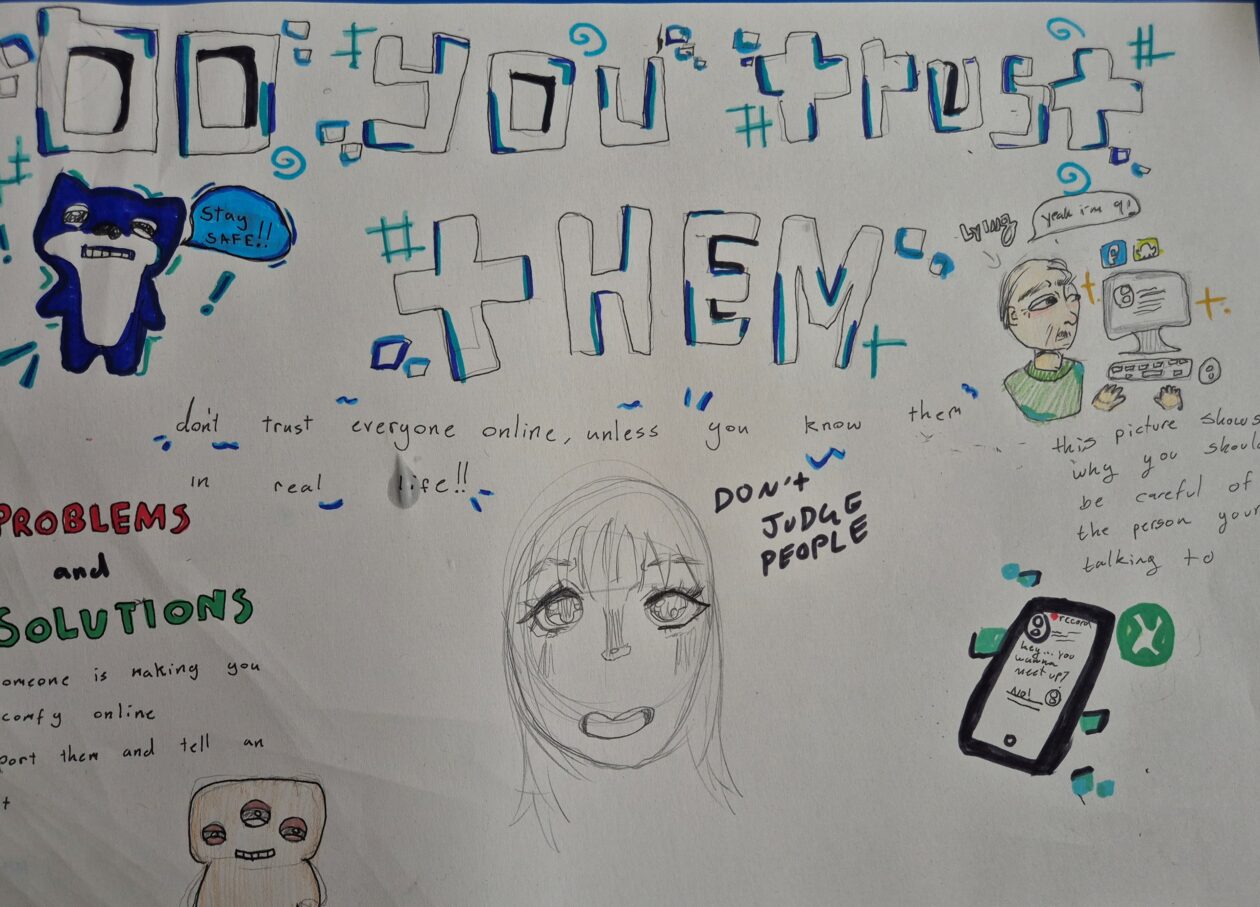 DO YOU trust
tHEM
Stay
SAFE!!
Lying
yeah i'm 9!
don't trust everyone online, unless you know them
in real life!!
this picture shows
why you should
be careful of
the person your
talking to
DON't
JUDGE
PEOPLE
PROBLEMS
and
SOLUTIONS
omeone is making you
comfy online
port them and tell an
t
record
hey... you
wanna
meet up?
No!